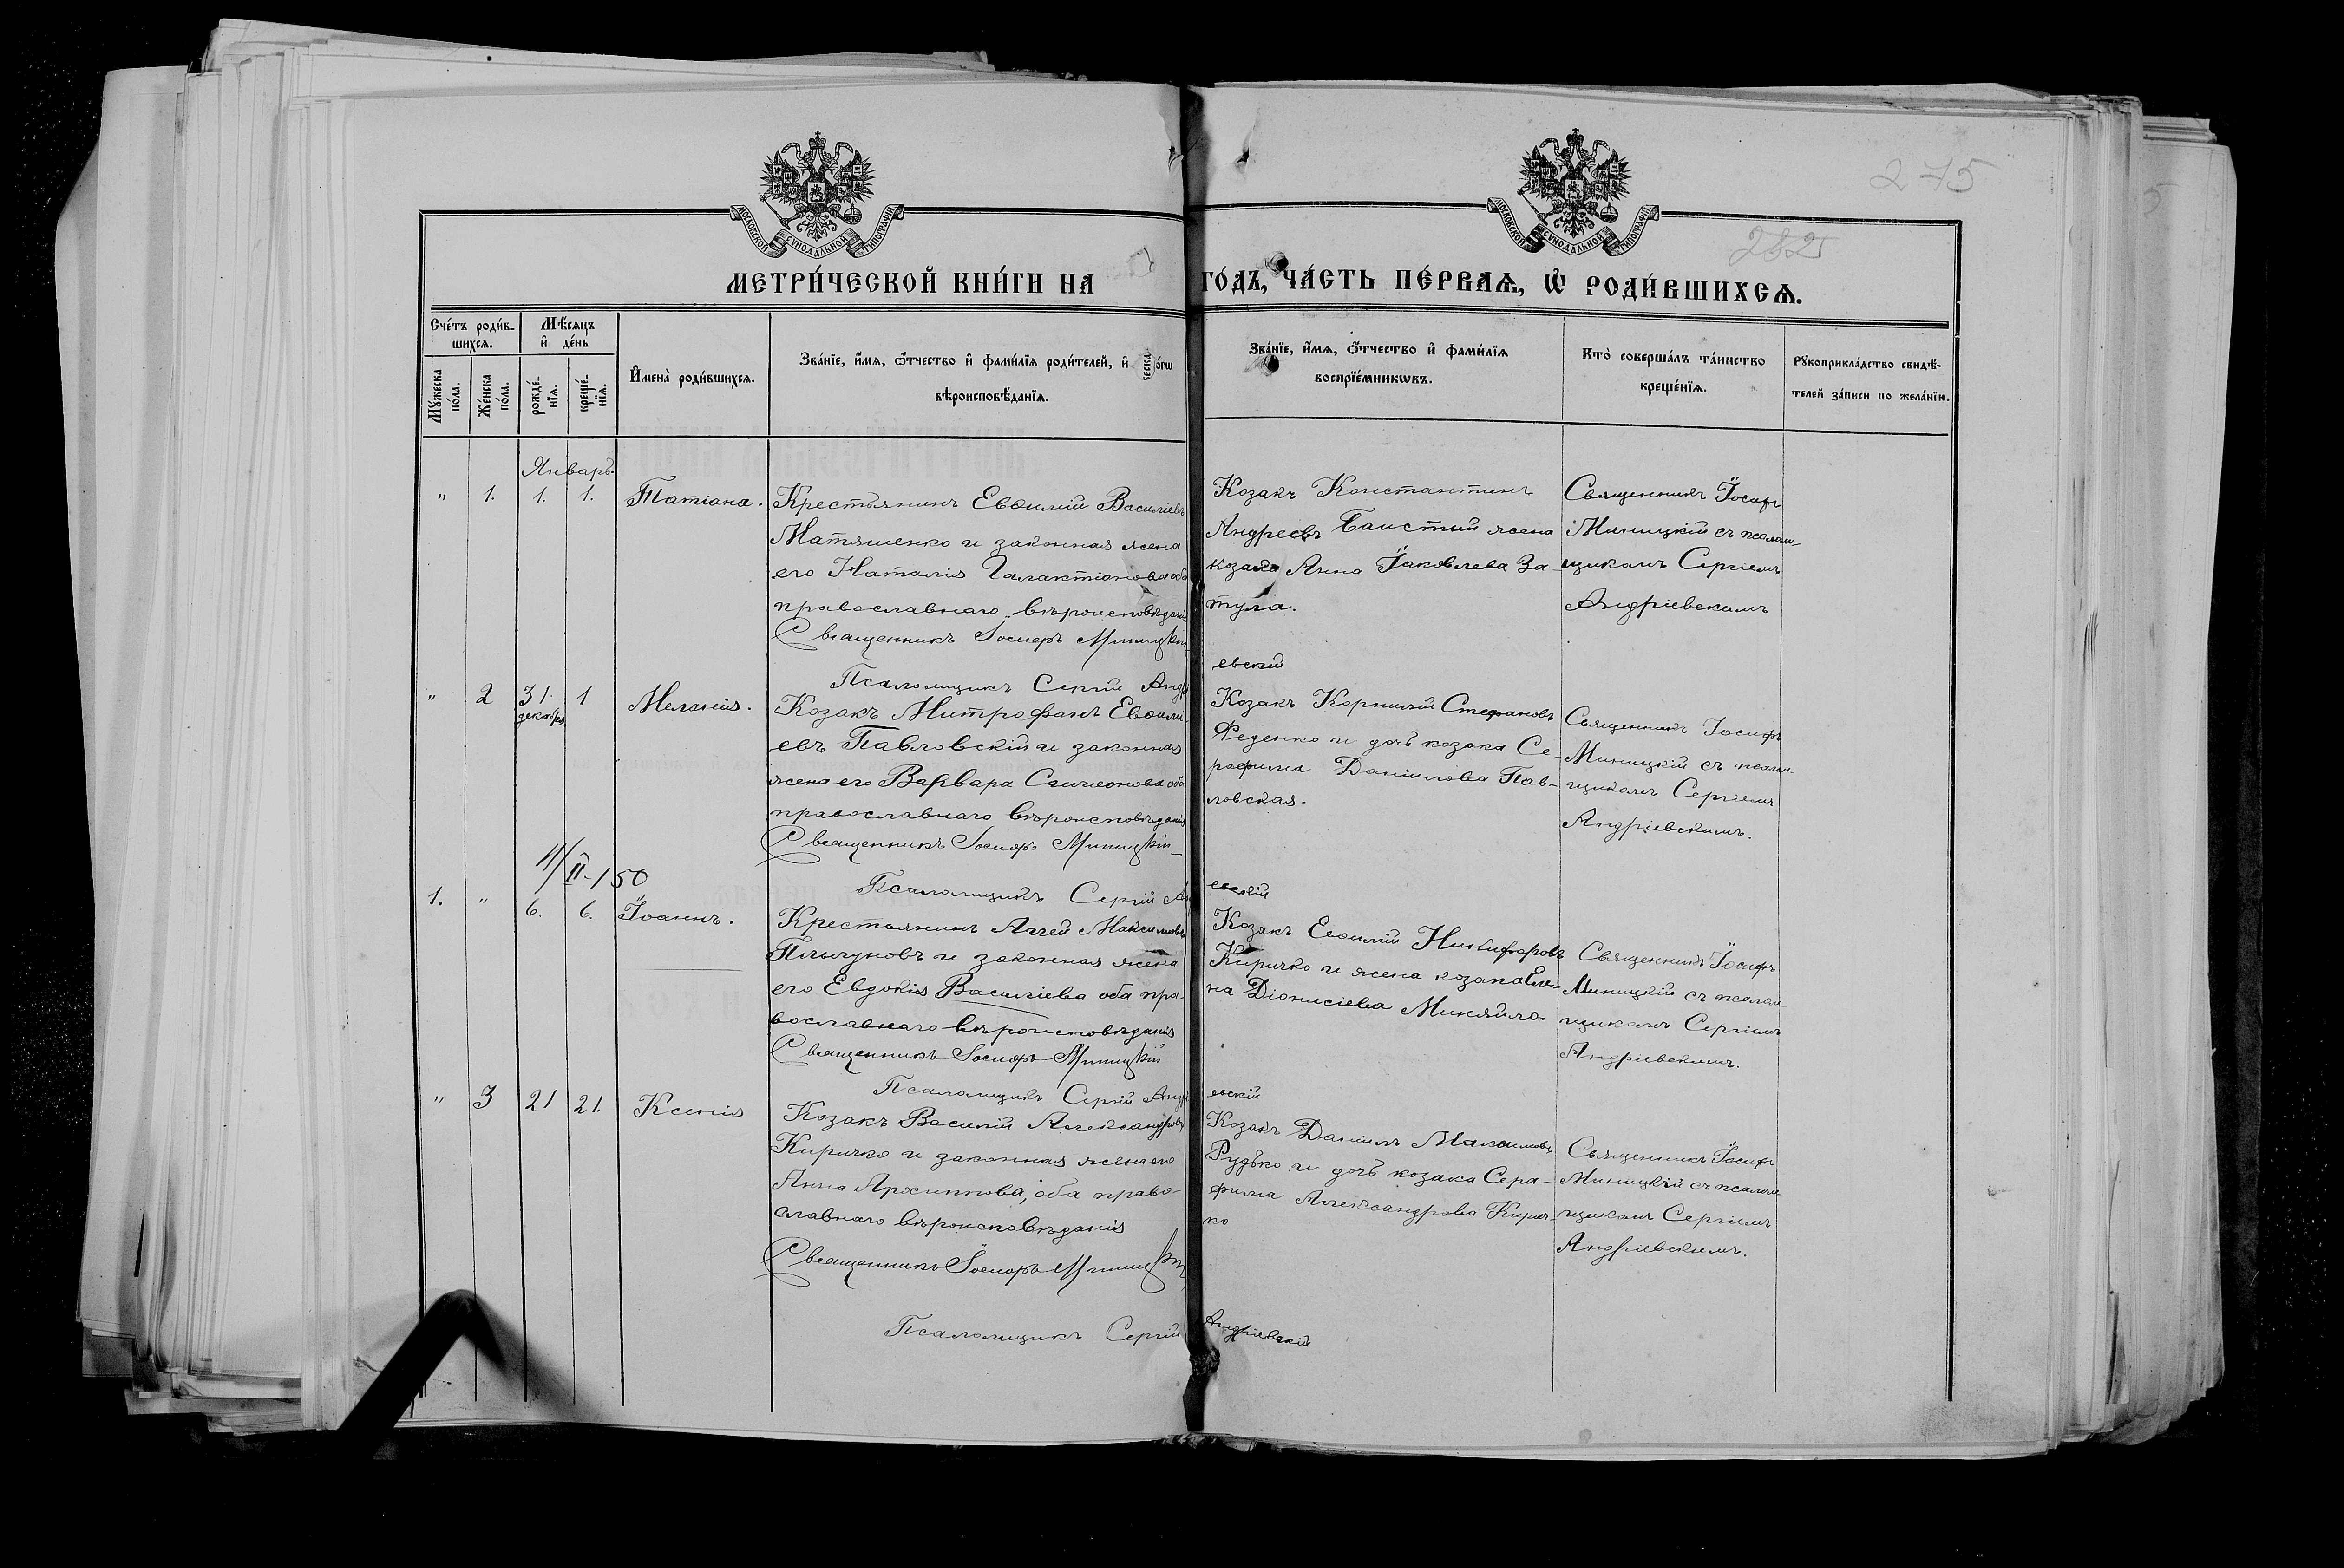 275
282
МОСКОВСКОЙ СѴНОДАЛЬНОЙ ТИПОГРАФІИ
МОСКОВСКОЙ СѴНОДАЛЬНОЙ ТИПОГРАФІИ
МЕТРИ́ЧЕСКОЙ КНИ́ГИ НА ГО́ДЪ, ЧА́СТЬ ПЕ́РВАѦ, Ѡ҆ РОДИ́ВШИХСѦ.
Сче́тъ роди́в-
шихсѧ.
Мѣ́сѧцъ
и҆ де́нь
Мꙋ́жеска
по́ла.
Же́нска
по́ла.
рожде́-
нїѧ.
креще́-
нїѧ.
И҆мена̀ роди́вшихсѧ.
Зва́нїе, и҆́мѧ, ѻ҆́тчество и҆ фами́лїѧ роди́телей, и҆
вѣроисповѣ́данїѧ.
Зва́нїе, и҆́мѧ, ѻ҆́тчество и҆ фами́лїѧ
воспрїе́мникѡвъ.
Кто̀ соверша́лъ та́инство
креще́нїѧ.
Рꙋкоприкла́дство свидѣ́-
телей за́писи по жела́нїю.
Январь.
" 1. 1. 1. Татіана.
Крестьянинъ Евѳимій Василіевъ
Матяшенко и законная жена
его Наталія Галактіонова оба
православнаго вѣроисповѣданія
Священникъ Іосифъ Миницкій
Псаломщикъ Сергій Андріевскій
Козакъ Константинъ
Андреевъ жена
козака Анна Іаковлева За-
тула.
Священникъ Іосифъ
Миницкій съ псалом-
щикомъ Сергіемъ
Андріевскимъ
" 2 31 декабря 1 Меланія.
Козакъ Митрофанъ Евѳимі-
евъ Павловскій и законная
жена его Варвара Симеонова оба
православнаго вѣроисповѣданія
Священникъ Іосифъ Миницкій
Псаломщикъ Сергій Андріевскій
Козакъ Корнилій Стефановъ
Феденко и дочь козака Се-
рафима Даніилова Пав-
ловская.
Священникъ Іосифъ
Миницкій съ псалом-
щикомъ Сергіемъ
Андріевскимъ.
4/II-150
1. " 6. 6. Іоаннъ.
Крестьянинъ Аггей Максимовъ
Плыгуновъ и законная жена
его Евдокія Василіева оба пра-
вославнаго вѣроисповѣданія
Священникъ Іосифъ Миницкій
Псаломщикъ Сергій Андріевскій
Козакъ Евѳимій Никифоровъ
Киричко и жена козака Еле-
на Діонисіева Миняйло
Священникъ Іосифъ
Миницкій съ псалом
щикомъ Сергіемъ
Андріевскимъ.
" 3 21 21. Ксенія
Козакъ Василій Александровъ
Киричко и законная жена его
Анна Архиппова, оба право-
славнаго вѣроисповѣданія
Священникъ Іосифъ Миницкій
Псаломщикъ Сергій Андріевскій
Козакъ Даніилъ Максимовъ
Рудько и дочь козака Сера-
фима Александрова Кирич-
ко
Священникъ Іосифъ
Миницкій съ псалом-
щикомъ Сергіемъ
Андріевскимъ.